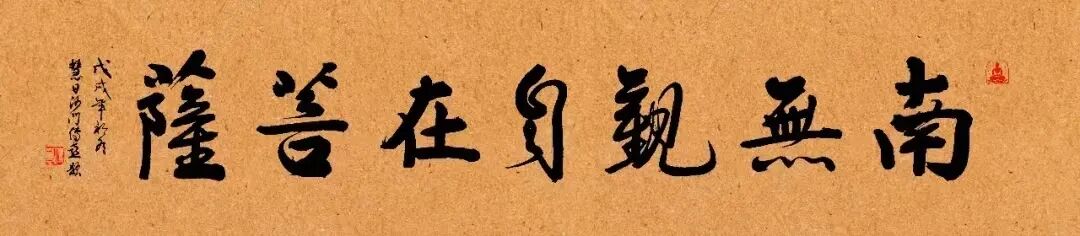 南無觀自在菩薩
戊戌年秋月
慧日沙門傳意題